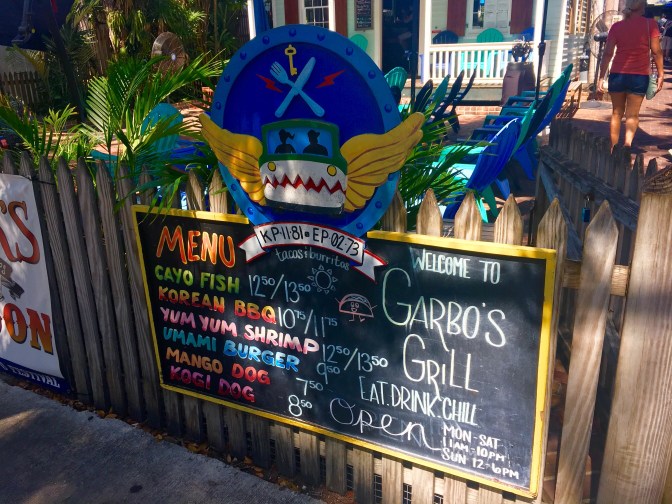 KP·11·81·EP·02·73
MENU
tacos burritos
CAYO FISH 12⁵⁰/13⁵⁰
KOREAN BBQ 10⁷⁵/11⁷⁵
YUM YUM SHRIMP 12⁵⁰/13⁵⁰
UMAMI BURGER 9⁵⁰
MANGO DOG 7⁵⁰
KOGI DOG 8⁵⁰
WELCOME TO
GARBO'S
GRILL
EAT.DRINK.CHILL
Open
MON-SAT
11AM-10PM
SUN 12-6PM
ON
FESTIVAL